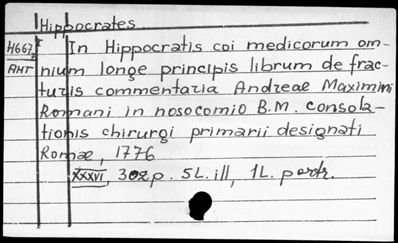 Hippocrates
H667f In Hippocratis coi medicorum om-
AHT nium longe principis librum de frac-
turis commentaria Andreae Maximini
Romani in nosocomio B.M. consola-
tionis chirurgi primarii designati
Romæ, 1776
XXXVI, 302p. 5L. ill, 1L. portr.